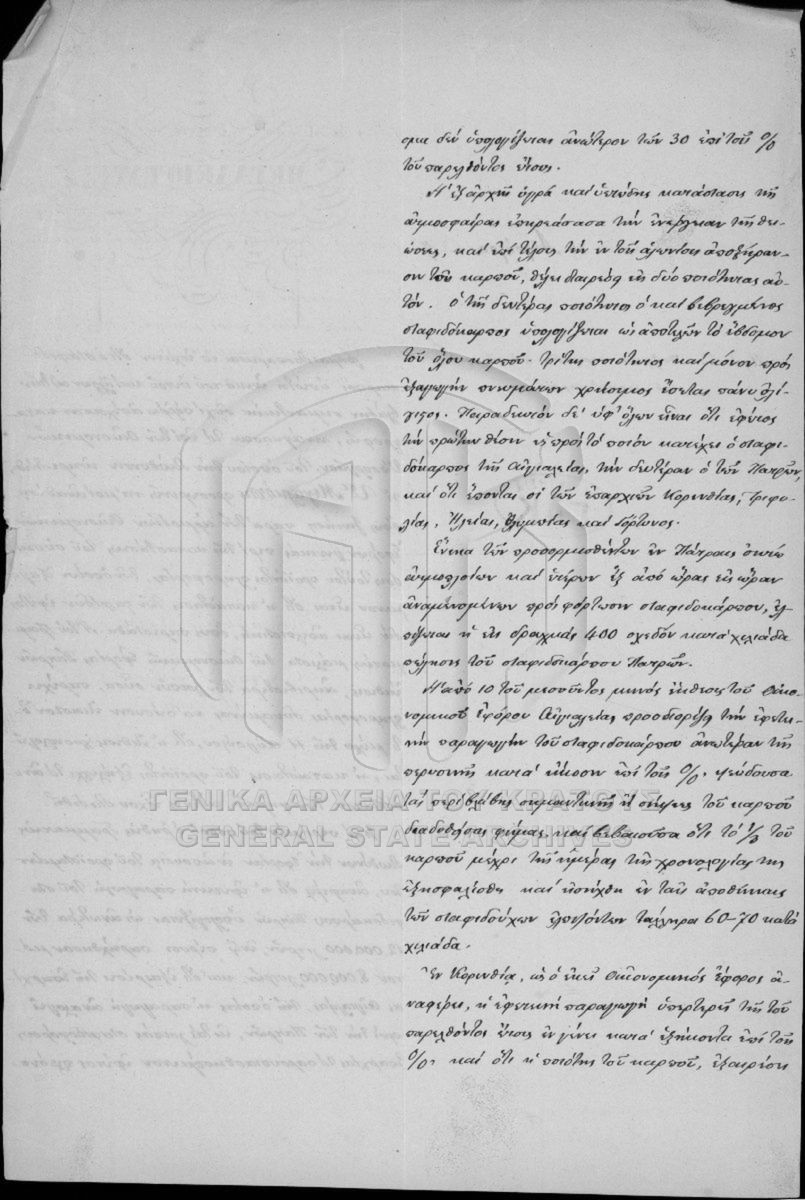 σμα δὲν ὑπολογίζεται ἀνώτερον τῶν 30 ἐπὶ τοῖς %
τοῦ παρελθόντος ἔτους.
Ἡ ἐξ ἀρχῆς ὑγρὰ καὶ ὑετώδης κατάστασις τῆς
ἀτμοσφαίρας ἐπηρεάσασα τὴν ἐνέργειαν τῆς θει-
ώσεως, καὶ ἐπὶ τέλους τὴν ἐν τοῖς ἁλωνίοις ἀποξήραν-
σιν τοῦ καρποῦ, θέλει διαιρέσῃ εἰς δύο ποιότητας αὐ-
τόν. Ὁ τῆς δευτέρας ποιότητος ὁ καὶ βεβρεγμένος
σταφιδόκαρπος ὑπολογίζεται ὡς ἀποτελῶν τὸ ἕβδομον
τοῦ ὅλου καρποῦ. Τρίτης ποιότητος καὶ μόνον πρὸς
ἐξαγωγὴν πνευμάτων χρήσιμος ἔσεται πάνυ ὀλί-
γιστος. Παραδεκτὸν δὲ ὑφ' ὅλων εἶναι ὅτι ἐφέτος
τὴν πρώτην θέσιν ὡς πρὸς τὸ ποιὸν κατέχει ὁ σταφι-
δόκαρπος τῆς Αἰγιαλείας, τὴν δευτέραν ὁ τῶν Πατρῶν,
καὶ ὅτι ἕπονται οἱ τῶν ἐπαρχιῶν Κορινθίας, Τριφυ-
λίας, Ἠλείας, Ὀλυμπίας καὶ Γόρτυνος.
Ἕνεκα τῶν προσορμισθέντων ἐν Πάτραις ὀκτὼ
ἀτμοπλοίων καὶ ἑτέρων ἓξ ἀπὸ ὥρας εἰς ὥραν
ἀναμενομένων πρὸς φόρτωσιν σταφιδοκάρπου, ἐλ-
πίζεται ἡ εἰς δραχμὰς 400 σχεδὸν κατὰ χιλιάδα
πώλησις τοῦ σταφιδοκάρπου Πατρῶν.
Ἡ ἀπὸ 10 τοῦ μεσοῦντος μηνὸς ἔκθεσις τοῦ Οἰκο-
νομικοῦ Ἐφόρου Αἰγιαλείας προσδιορίζει τὴν ἐφετει-
νὴν παραγωγὴν τοῦ σταφιδοκάρπου ἀνωτέραν τῆς
περυσινῆς κατὰ εἴκοσιν ἐπὶ τοῖς %, ψεύδουσα
τὰς περὶ βλάβης σημαντικῆς ἢ σήψεως τοῦ καρποῦ
διαδοθείσας φήμας, καὶ βεβαιοῦσα ὅτι τὸ 1/3 τοῦ
καρποῦ μέχρι τῆς ἡμέρας τῆς χρονολογίας της
ἐξησφαλίσθη καὶ εἰσήχθη ἐν ταῖς ἀποθήκαις
τῶν σταφιδούχων ἐλπιζόντων τάλληρα 60-70 κατὰ
χιλιάδα.
Ἐν Κορινθίᾳ, ὡς ὁ ἐκεῖ Οἰκονομικὸς Ἔφορος ἀ-
ναφέρει, ἡ ἐφετεινὴ παραγωγὴ ὑπερτερεῖ τῆς τοῦ
παρελθόντος ἔτους ἐν γένει κατὰ ἑξήκοντα ἐπὶ τοῖς
%, καὶ ὅτι ἡ ποιότης τοῦ καρποῦ, ἐξαιρέσει
ΓΕΝΙΚΑ ΑΡΧΕΙΑ ΤΟΥ ΚΡΑΤΟΥΣ
GENERAL STATE ARCHIVES